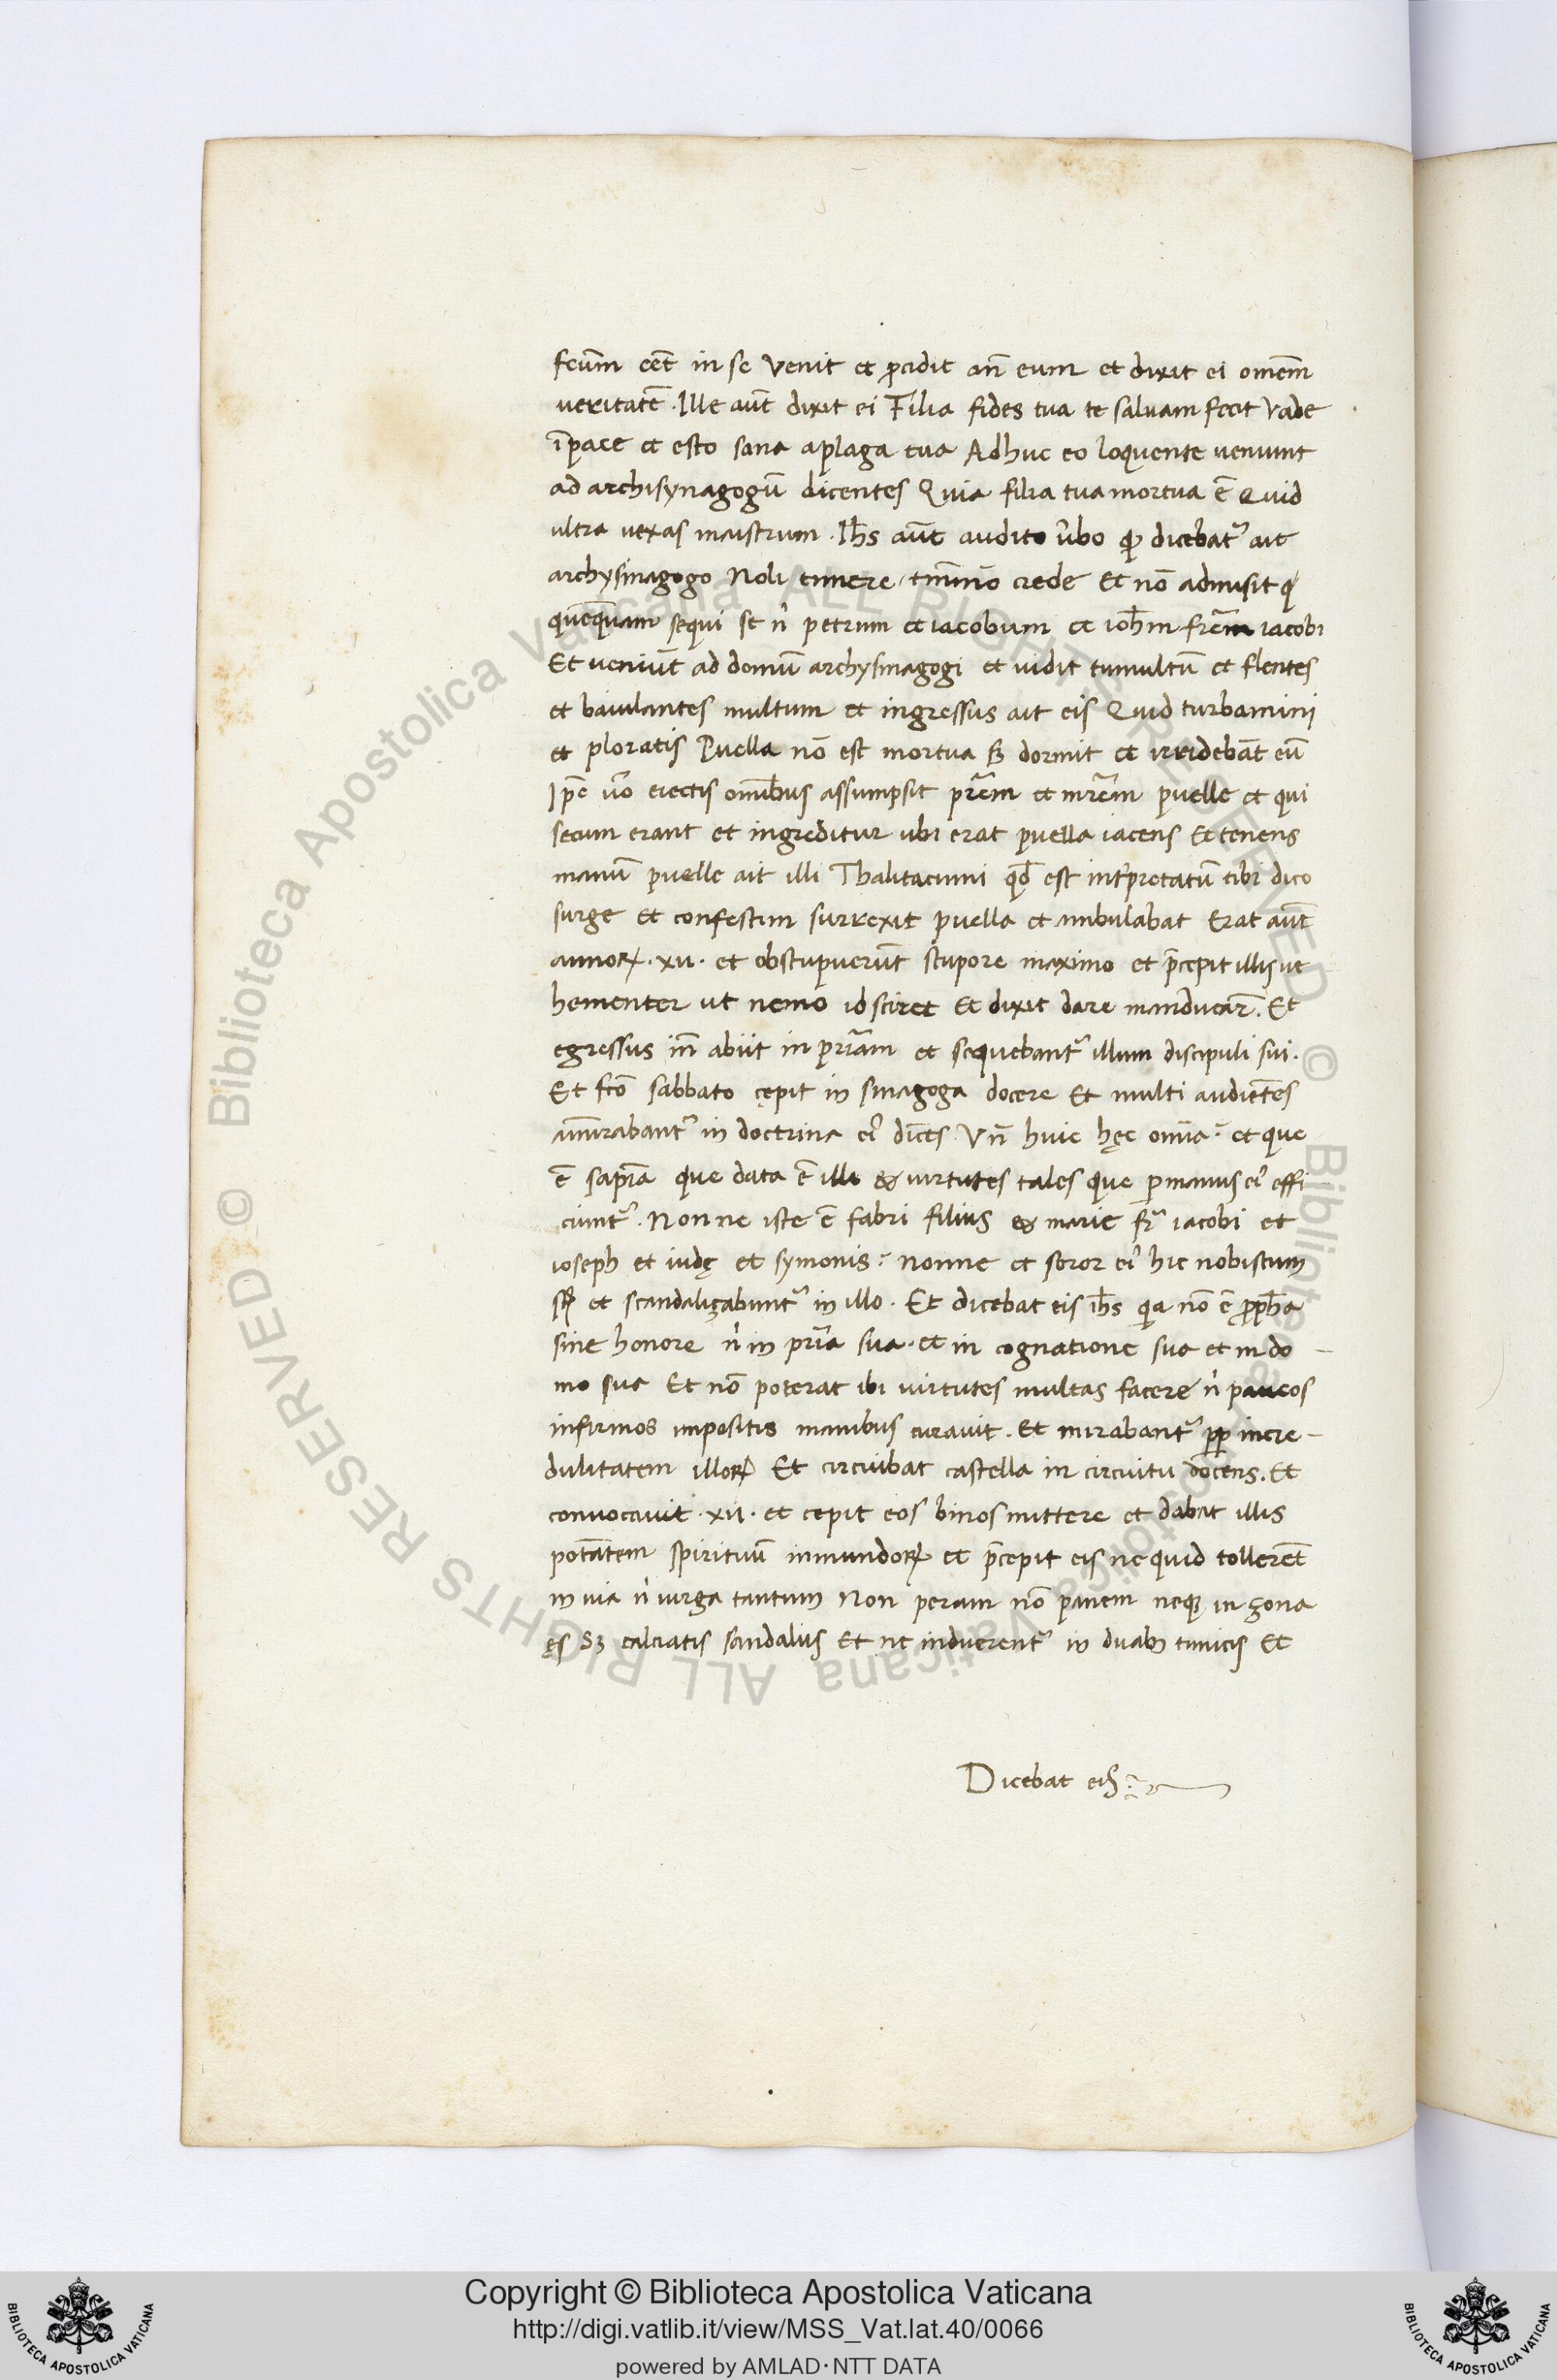 fcũm eẽt in se Venit et p̱cidit añ eum et dixit ei omẽm
veritatẽ. Ille aũt dixit ei Filia fides tua te saluam fecit Vade
ĩpace et esto sana aplaga tua Adhuc eo loquente veniunt
ad archisynagogũ dicentes Quia filia tua mortua ẽ Quid
ultra vexas maistrum. Ihs̄ aũt audito ùbo qđ dicebatʳ ait
archysinagogo Noli timere tm̃mõ crede Et nõ admisit
quẽq̃uam sequi se ǹ petrum et iacobum et ioh̄m fr̃em iacobi
Et veniũt ad domũ archysinagogi et vidit tumultũ et flentes
et baiulantes multum et ingressus ait eis Quid turbamini
et ploratis Puella nõ est mortua sꝫ dormit et irridebãt eũ
Ip̃e ùo eiectis omĩbus assumpsit pr̃em et mr̃em puelle et qui
secum erant et ingreditur ubi erat puella iacens Et tenens
manũ puelle ait illi Thalitacumi qđ est int̓pretatũ tibi dico
surge Et confestim surrexit puella et ambulabat Erat aũt
annoꝝ .xii. et obstupuerũt stupore maximo et p̃cepit illis ve
hementer ut nemo id sciret Et dixit dare manducar̃. Et
egressus iñ abiit in pr̃iam et sequebantʳ illum discipuli sui.
Et fc̃o sabbato cępit in sinagoga docere Et multi audiẽtes
amirabantʳ in doctrina eiꝰ dic̃es Vñ huic hęc om̃ia. et que
ẽ sapĩa que data ẽ illi & virtutes tales que ꝑ manus eiꝰ effi
ciuntʳ. Nonne iste ẽ fabri filius & marie fr̃ iacobi et
ioseph et iudę et symonis. nonne et soror eiꝰ hic nobiscum
sꝫ et scandalizabuntʳ in illo. Et dicebat eis ih̄s q̃a nõ ẽ ꝓph̃a
sine honore ǹ in pr̃ia sua. et in cognatione sua et in do
mo sua Et nõ poterat ibi virtutes multas facere ǹ paucos
infirmos impositis manibus curauit. Et mirabantʳ ꝓp incre-
dulitatem illoꝝ Et circuibat castella in circuitu docens. Et
conuocauit .xii. et cepit eos binos mittere et dabat illis
potãtem spirituũ inmundoꝝ et p̃cepit eis ne quid tollerẽt
in via ǹ virga tantum Non peram nõ panem neqꝫ in zona
ęs Sꝫ calciatis sandaliis Et ne induerentʳ in duabꝫ tunicis Et
Dicebat eis
Copyright © Biblioteca Apostolica Vaticana
http://digi.vatlib.it/view/MSS_Vat.lat.40/0066
powered by AMLAD·NTT DATA
BIBLIOTECA APOSTOLICA VATICANA
BIBLIOTECA APOSTOLICA VATICANA
© Biblioteca Apostolica Vaticana ALL RIGHTS RESERVED
© Biblioteca Apostolica Vaticana ALL RIGHTS RESERVED